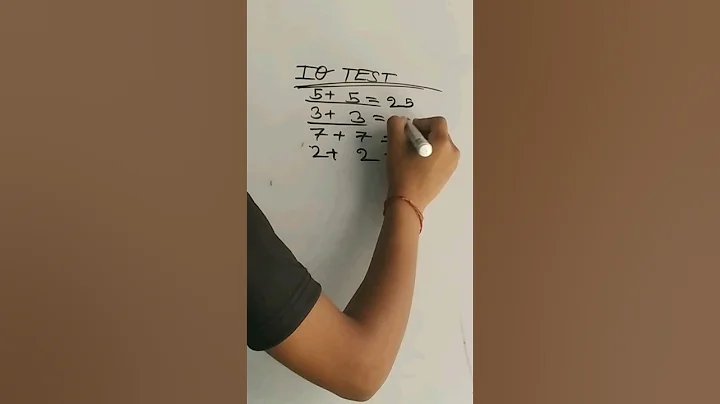 IQ TEST
5+ 5 = 25
3+ 3 =
7 + 7 =
2+ 2